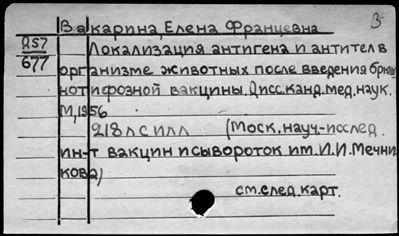 Вакарина, Елена Францевна
З
Д57
677
Локализация антигена и антител в
организме животных после введения брюш
нотифозной вакцины. Дисс. канд. мед. наук.
М, 1956
218 л с илл (Моск. науч.-послед.
ин-т вакцин и сывороток им. И.И. Мечни
кова)
см. след. карт.